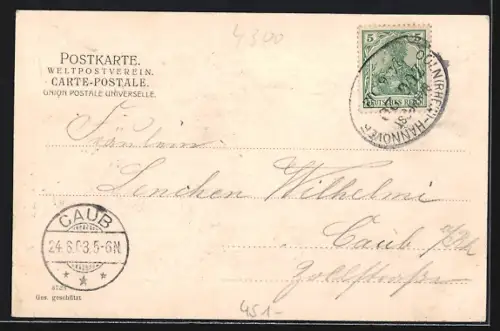 4300
POSTKARTE.
WELTPOSTVEREIN.
CARTE-POSTALE.
UNION POSTALE UNIVERSELLE.
5 5
DEUTSCHES REICH
CÖLN(RHEIN)-HANNOVER
Fräulein
Lenchen Wilhelmi
Caub a/Rh
Zollstraße
CAUB
24.6.03.5-6N
Ges. geschützt
451-